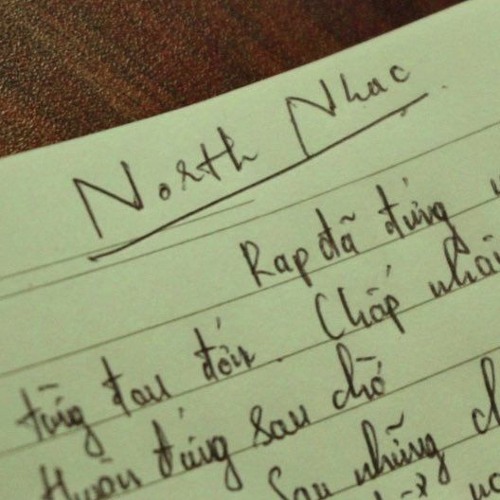 North Nhac
Rap đã đứng
từng đau đớn. Chấp nhận
đứng sau chó
Sau những